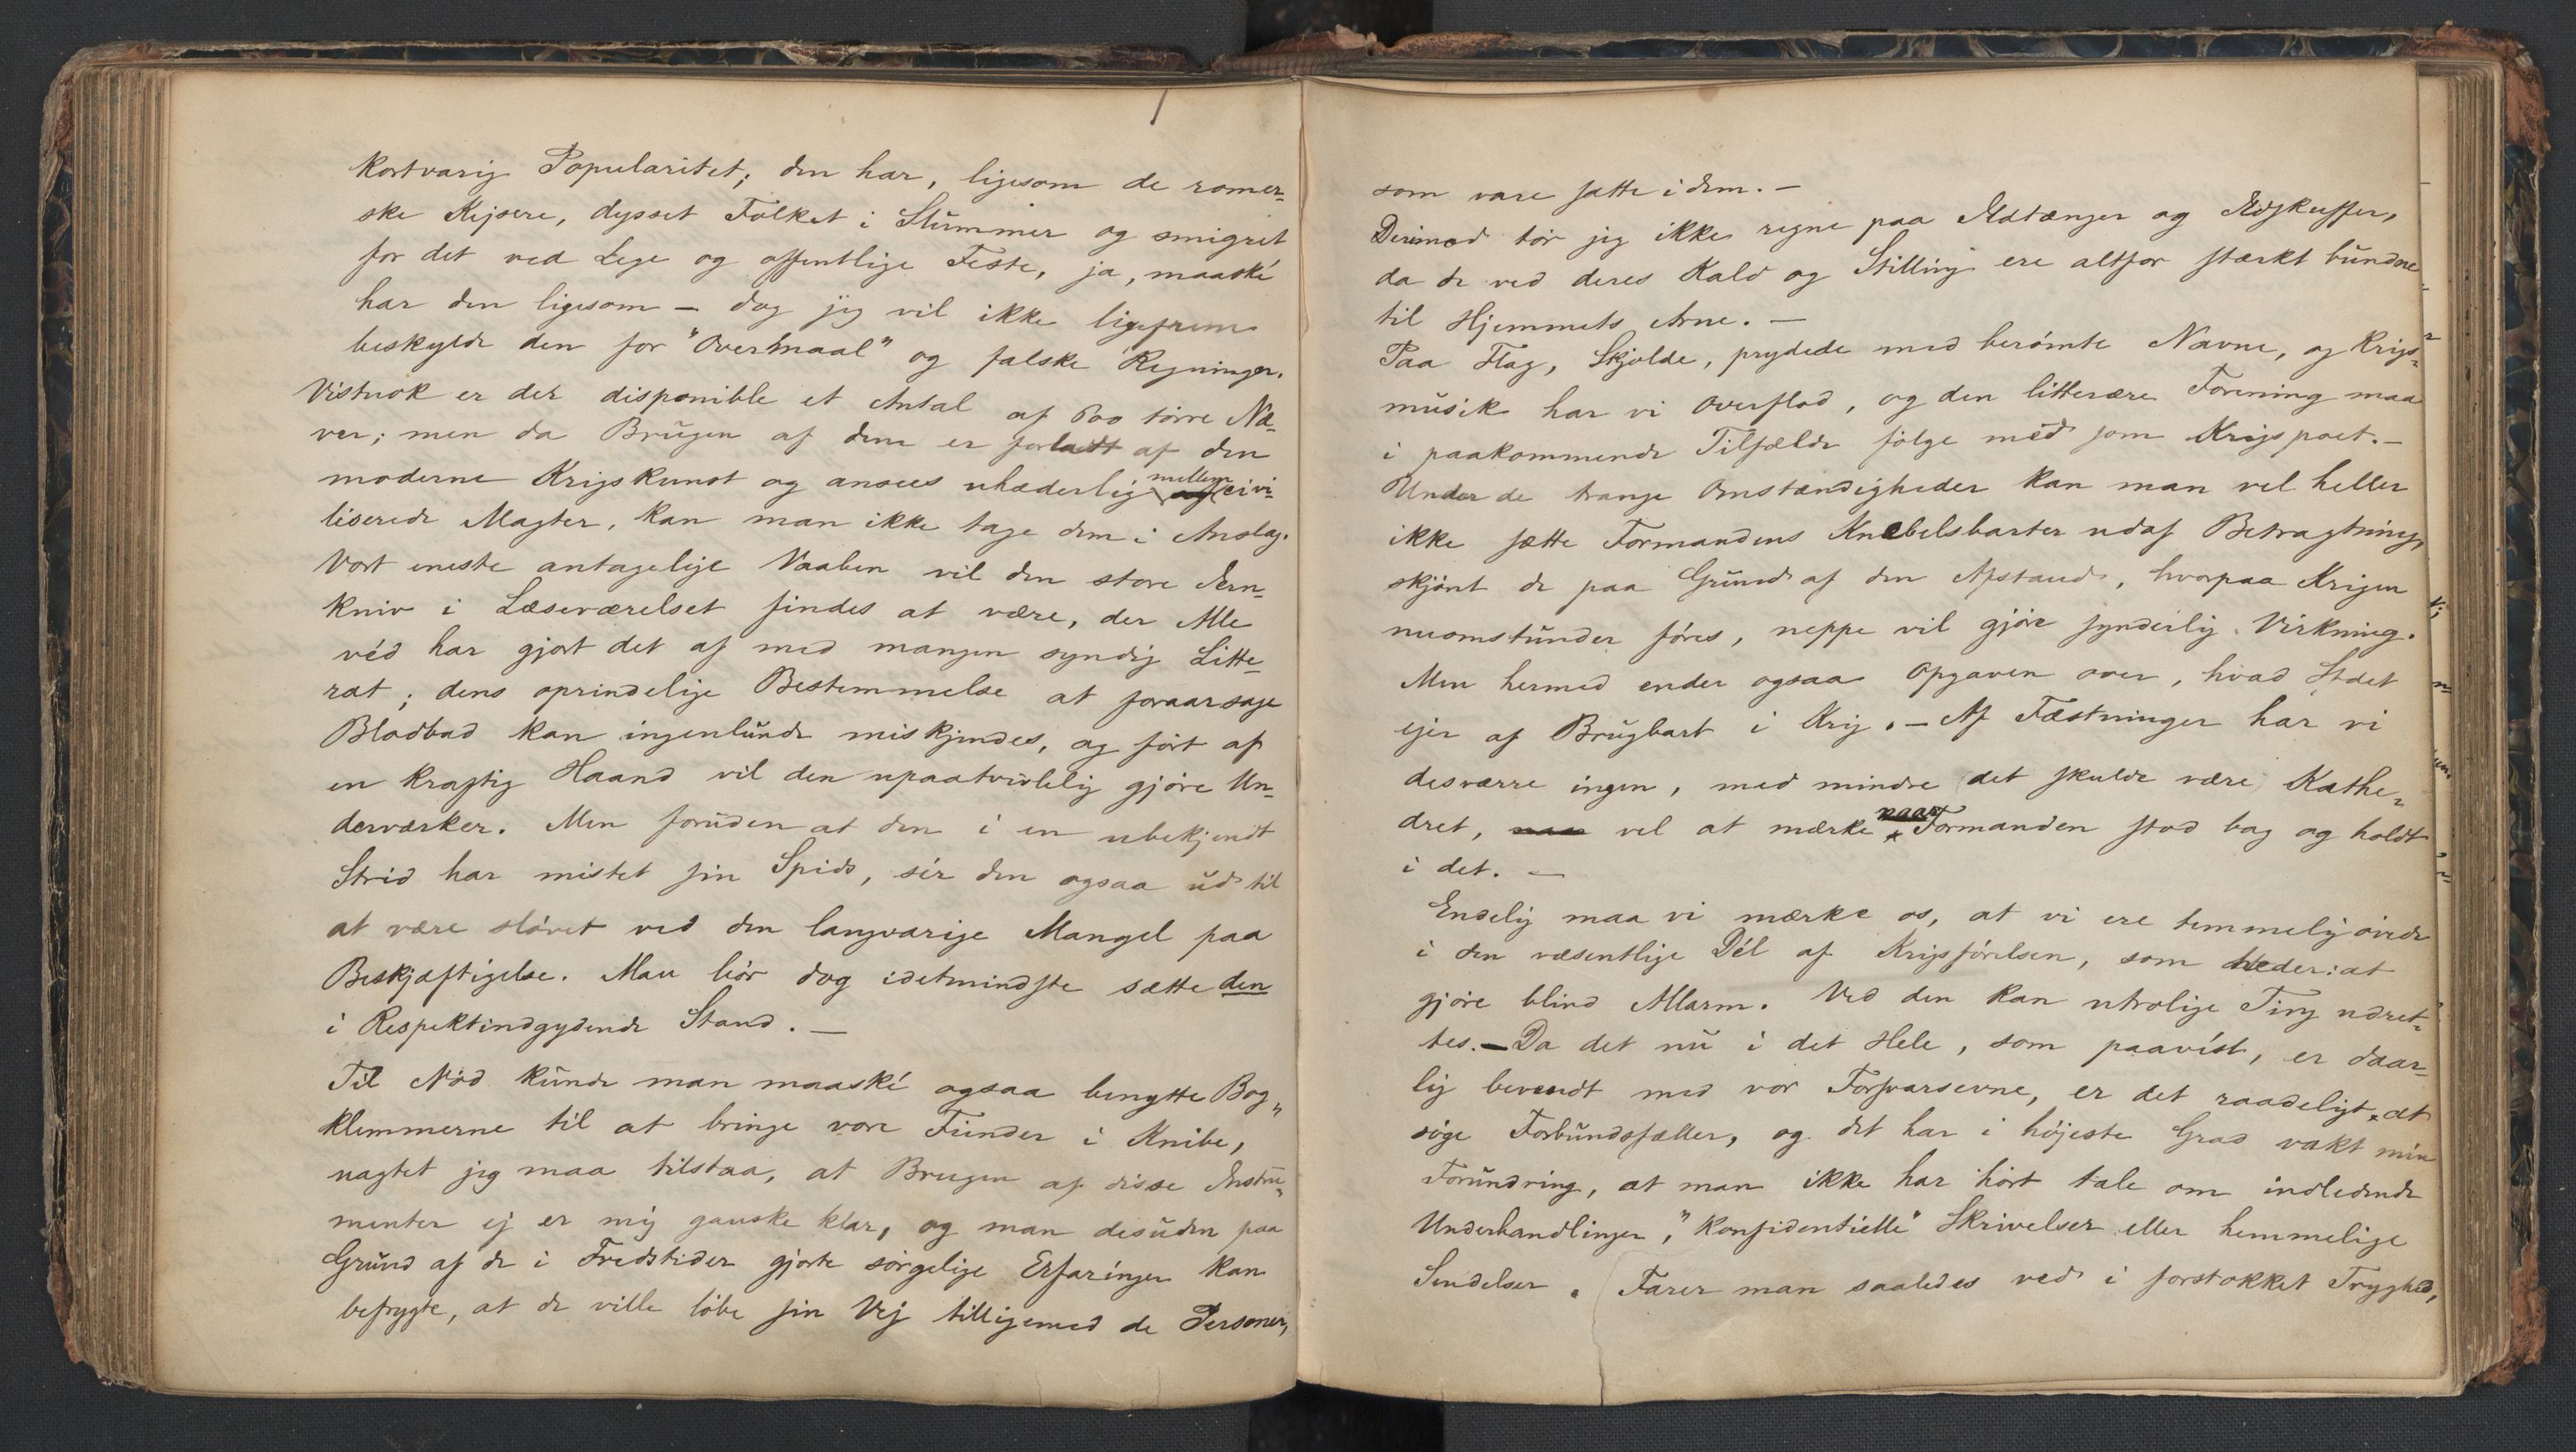 kortvarig Popularitet; den har, ligesom de romer-
ske Kejsere, dysset Folket i Slummer og smigret
for det ved Lege og offentlige Feste, ja, maaské
har den ligesom – dog jeg vil ikke ligefrem
beskylde den for "Overmaal" og falske Regninger.
Vistnok er der disponible et Antal af 800 törre Næ-
ver; men da Brugen af dem er forladt af den
moderne Krigskunst og ansees uhæderlig mellem civi-
liserede Magter, kan man ikke tage dem i Anslag.
Vort eneste antagelige Vaaben vil den store Jern-
kniv i Læseværelset findes at være, der Alle
véd har gjort det af med mangen syndig Litte-
rat; dens oprindelige Bestemmelse at foraarsage
Blodbad kan ingenlunde miskjendes, og fört af
en kraftig Haand vil den upaatvivlelig gjöre Un-
derværker. Men foruden at den i en ubekjendt
Strid har mistet sin Spids, sér den ogsaa ud til
at være slövet ved den langvarige Mangel paa
Beskjæftigelse. Man bör dog idetmindste sætte den
i Respektindgydende Stand. –
Til Nöd kunde man maaské ogsaa benytte Bog-
klemmerne til at bringe vore Fiender i Knibe,
uagtet jeg maa tilstaa, at Brugen af disse Instru-
menter ej er mig ganske klar, og man desuden paa
Grund af de i Fredstider gjorte sörgelige Erfaringer kan
befrygte, at de ville löbe sin Vej tilligemed de Personer,
som vare satte i dem. –
Derimod tör jeg ikke regne paa Ildtænger og Ildskuffer,
da de ved deres Kald og Stilling ere altfor stærkt bundne
til Hjemmets Arne. –
Paa Flag, Skjolde, prydede med berömte Navne, og Krigs-
musik har vi Overflod, og den litterære Forening maa
i paakommende Tilfælde fölge med som Krigspoet. –
Under de trange Omstændigheder kan man vel heller
ikke sætte Formandens Knebelsbarter udaf Betragtning,
skjönt de paa Grund af den Afstand, hvorpaa Krigen
nuomstunder föres, neppe vil gjöre synderlig Virkning.
Men hermed ender ogsaa Opgaven over, hvad Stdet
ejer af Brugbart i Krig. – Af Fæstninger har vi
desværre ingen, med mindre det skulde være Kathe-
dret, vel at mærke naar Formanden stod bag og holdt
i det. –
Endelig maa vi mærke os, at vi ere temmelig övede
i den væsentlige Dél af Krigsförelsen, som heder: at
gjöre blind Allarm. Ved den kan utrolige Ting udret-
tes. – Da det nu i det Hele, som paavíst, er daar-
lig bevendt med vor Forsvarsevne, er det raadeligt, at
söge Forbundsfæller, og det har i höjeste Grad vakt min
Forundring, at man ikke har hört tale om indledende
Underhandlinger, "konfidentielle" Skrivelser eller hemmelige
Sendelser. Farer man saaledes ved i forstokket Tryghed,